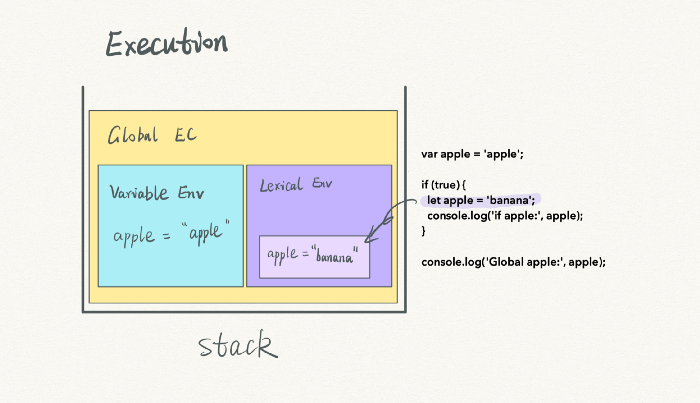 Execution
Global EC
Variable Env
apple = "apple"
Lexical Env
apple = "banana"
stack
var apple = 'apple';
if (true) {
let apple = 'banana';
console.log('if apple:', apple);
}
console.log('Global apple:', apple);